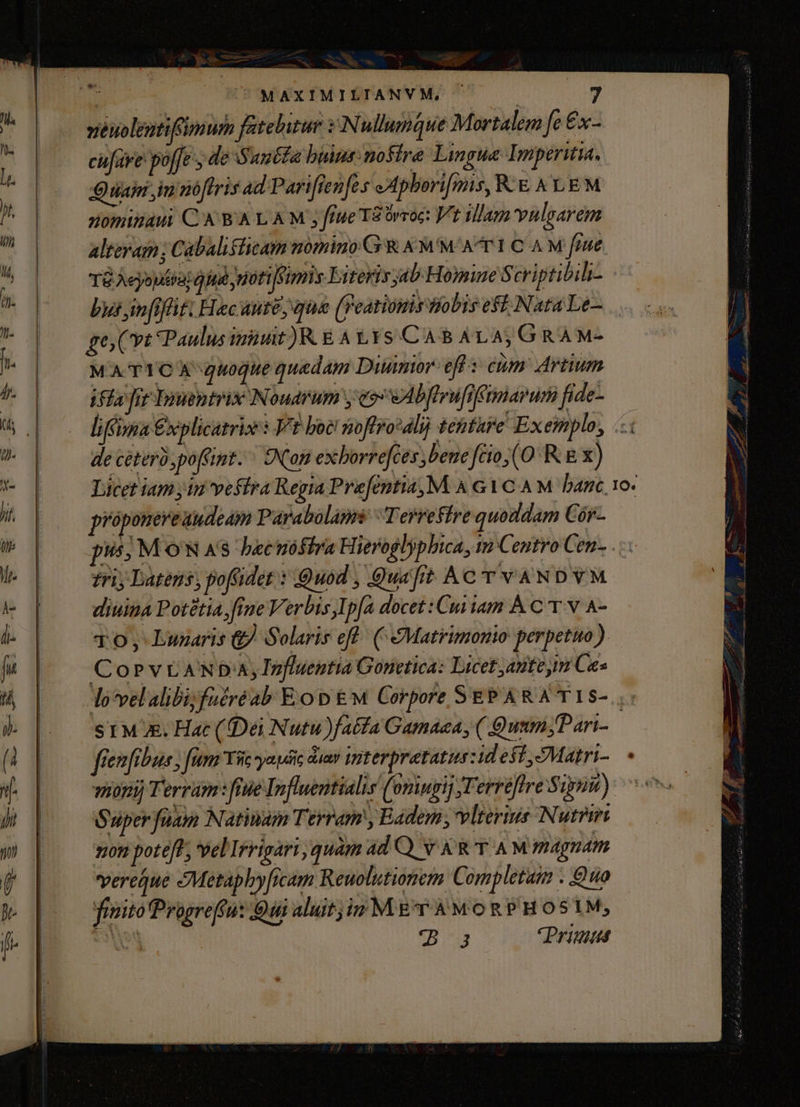 MAXIMILIANVM, 7
neuolentißimum fatebitur: Nullumque Mortalem se Ex-
cusare posse, de Sancta huius nostræ Linguæ Imperitia.
Quam, in nostris ad Parisienses Aphorismis, REALEM
nominaui CABALAM, siue τȣ̃ ὄντος: Vt illam vulgarem
alteram, Cabalisticam nomino GRAMMATICAM siue
τȣ̃ λεγομένȣ; quæ, notißimis Literis, ab Homine Scriptibili-
bus, insistit. Hæc autē, quæ Creationis nobis est Nata Le-
ge, (vt Paulus innuit) REALIS CABALA, GRAM-
MATICA quoque quædam Diuinior est: cùm Artium
ista sit Inuentrix Nouarum, & Abstrusißimarum fide-
lißima Explicatrix: Vt hoc nostro alij tentare Exemplo,
de ceterò, possint. Non exhorresces, bene scio, (O REX)
Licet iam, in vestra Regia Præsentia, MAGICAM hanc 10.
proponere audeam Parabolam: Terrestre quoddam Cor-
pus, MONAS hæc nostra Hieroglyphica, in Centro Cen-
tri, Latens, poßidet: Quod, Qua sit ACTVANDVM
diuina Potētia, sine Verbis, Ipsa docet: Cui iam ACTVA-
TO, Lunaris & Solaris est (Matrimonio perpetuo)
COPVLANDA, Influentia Gonetica: Licet, ante, in Cæ-
lo vel alibi, fuére ab EODEM Corpore SEPARATIS-
SIMÆ. Hac (Dei Nutu) facta Gamaea, (Quum, Pari-
siensibus, sum Τῆς γαμῆς ἄιαν interpretatus: id est, Matri-
monij Terram: siue Influentialis Coniugij, Terrestre Signū)
Super suam Natiuam Terram, Eadem, vlterius Nutriri
non potest, vel Irrigari, quàm ad QVARTAM magnam
veréque Metaphysicam Reuolutionem Completam. Quo
finito Progressu: Qui aluit, in METAMORPHOSIM,
B 3 Primus